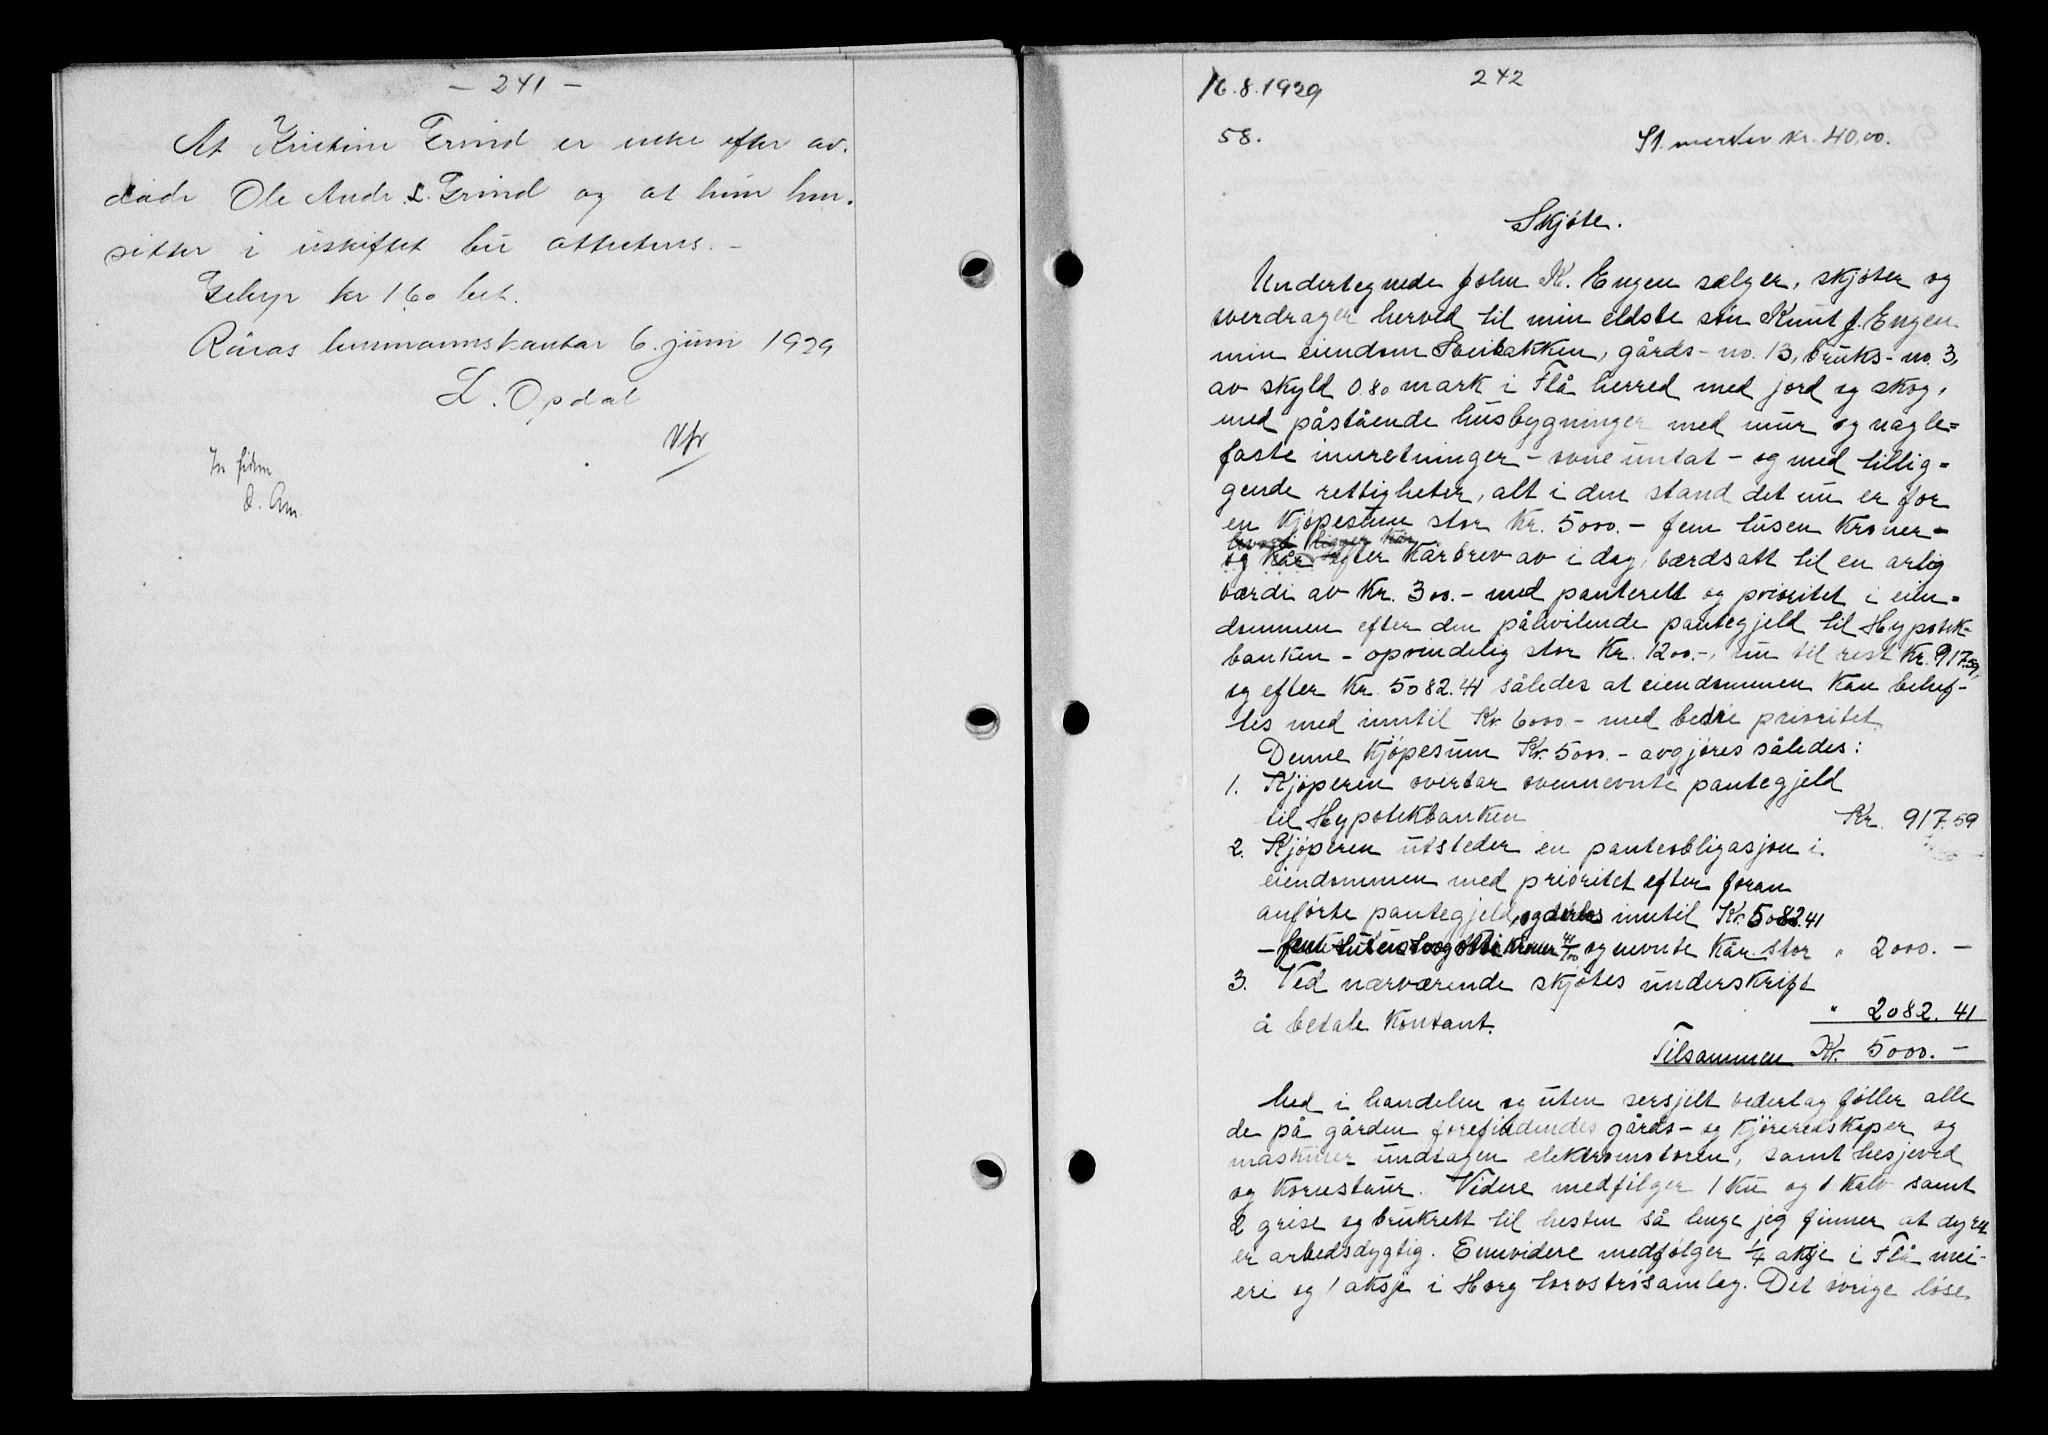 - 241 -
At Kristine Grind er enke efter av-
døde Ole Andr. L. Grind og at hun hen-
sitter i uskiftet bu attesteres. -
Gebyr kr 1.60 bet.
Røros lensmannskontor 6. juni 1929
L. Opdal
In fidem
242
16.8.1929
58.
St. merker kr. 40.00.
Skjøte.
Undertegnede John K. Engen sælger, skjøter og
overdrager herved til min eldste søn Knut J. Engen
min eiendom Sveibakken, gårds-no. 13, bruks-no. 3,
av skyld 0.80 mark i Flå herred med jord og skog,
med påstående husbygninger med mur og nagle=
faste innretninger - ovne untat - og med tillig=
gende rettigheter, alt i den stand det nu er for
en kjøpesum stor kr. 5000.- fem tusen kroner -
hvori ligger kår
og kår efter kårbrev av i dag, værdsatt til en årlig
værdi av kr. 300.- med panterett og prioritet i eien=
dommen efter den påhvilende pantegjeld til Hypotek-
banken - oprindelig stor kr. 1200.-, nu til rest kr. 917.59,
og efter kr. 5082.41 således at eiendommen kan behef-
tes med inntil kr. 6000.- med bedre prioritet.
Denne kjøpesum kr. 5000.- avgjøres således:
1. Kjøperen overtar ovennevnte pantegjeld
til Hypotekbanken Kr. 917.59
2. Kjøperen utsteder en panteobligasjon i
eiendommen med prioritet efter foran
anførte pantegjeld, og inntil Kr. 5082.41
- fem tusen to og otti kroner 41/100 og nevnte kår stor " 2000.-
3. Ved nærværende skjøtes underskrift
å betale kontant. " 2082.41
Tilsammen Kr. 5000.-
Med i handelen og uten sersjelt vederlag føller alle
de på gården forefindendes gårds- og kjøreredskaper og
maskiner undtagen elektromotoren, samt hesjeved
og kornstaur. Videre medfølger 1 ku og 1 kalv samt
2 grise og bruksrett til hesten så lenge jeg finner at dyret
er arbeidsdygtig. Ennvidere medfølger 1/4 aksje i Flå mei-
eri og 1 aksje i Horg torvstrøsamlag. Det øvrige løse